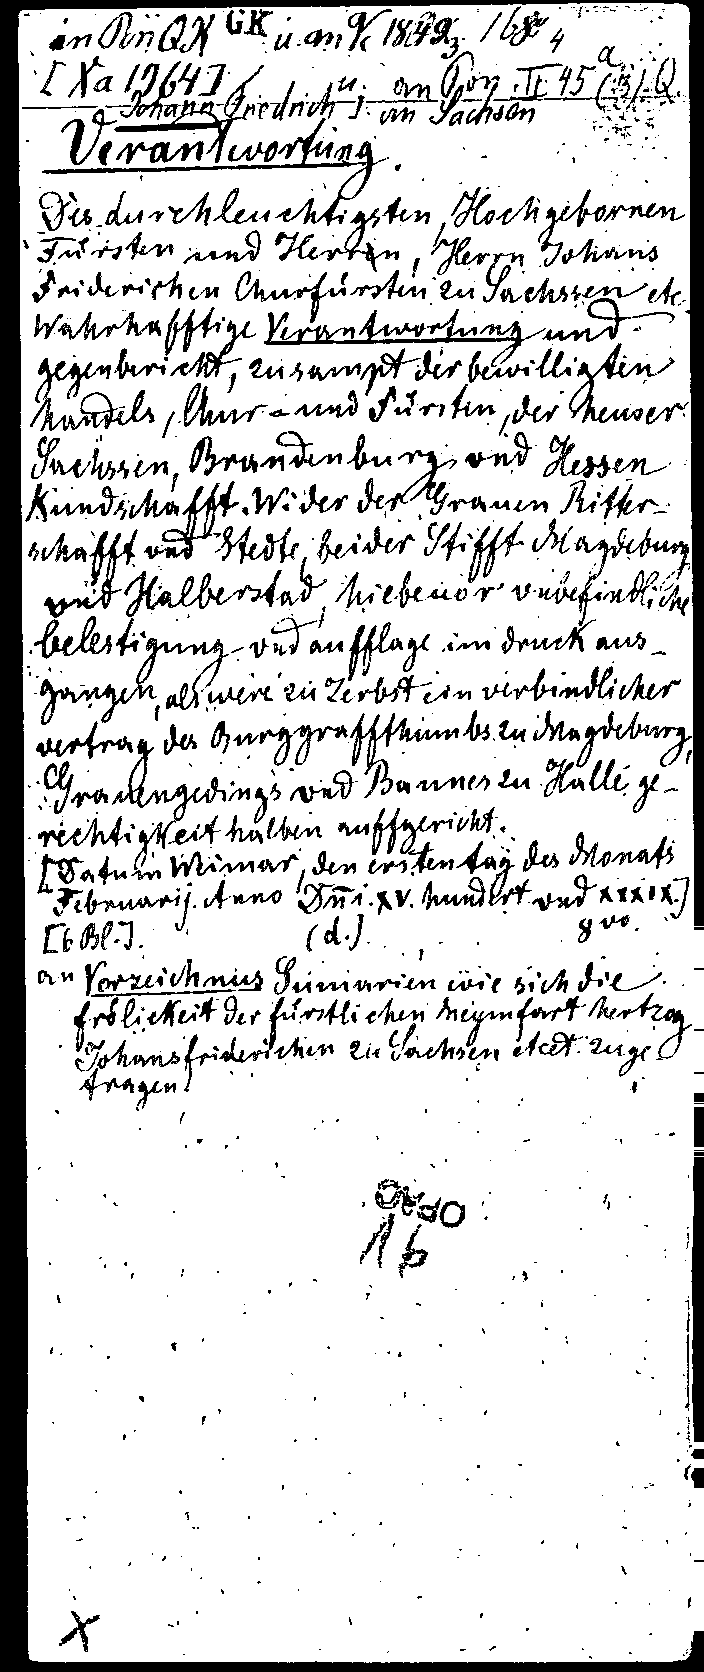 an Rii QN GK u. an Vc 1849 168 4
[Xa 1964] u. an Pon. II 45 a (3). Q.
Johann Friedrich I. an Sachsen
Verantwortung.
Des durchleuchtigsten, Hochgebornen
Fürsten und Herren, Herrn Johans
Friderichen Churfürsten zu Sachssen etc
Wahrhafftige Verantwortung und
gegenbericht, zusampt der bewilligten
handels, Chur- und Fürsten, der heuser
Sachssen, Brandenburg, vnd Hessen
Kundschafft. Wider der Grauen Ritter-
schafft vnd Stedte, beider Stifft Magdeburg
vnd Halberstad, hiebeuor vnbefindliche
belestigung vnd aufflage im druck aus-
gangen, als were zu Zerbst ein verbindlicher
vertrag des Burggraffthumbs zu Magdeburg,
Grauengedings vnd Bannes zu Halle ge-
rechtigkeit halben auffgericht.
[Datum Weimar, den ersten tag des Monats
Februarij. Anno Dn̄i. xv. hundert vnd xxxix.]
[6 Bl.]. (d.) 8vo.
an Vorzeichnus Sumarien wie sich die
frölickeit der fürstlichen heymfart hertzog
Johansfriderichen zu Sachsen etcet. zuge-
tragen.
16